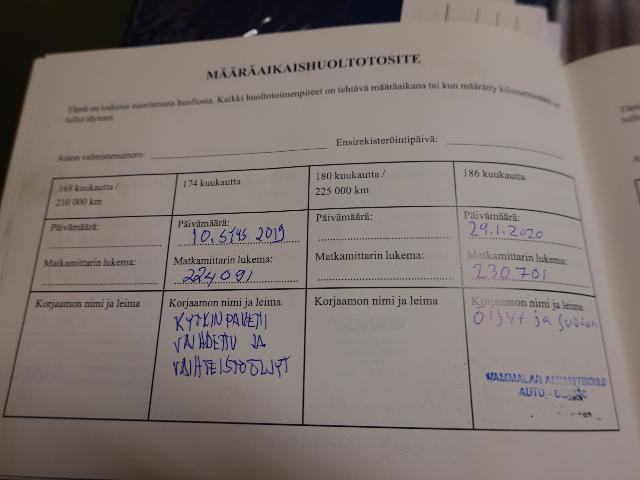 MÄÄRÄAIKAISHUOLTOTOSITE
Tämä on todistus suoritetusta huollosta. Kaikki huoltotoimenpiteet on tehtävä määräaikana tai kun määrätty kilometrimäärä on
tullut täyteen.
Auton valmistenumero: Ensirekisteröintipäivä:
168 kuukautta /
210 000 km
174 kuukautta
180 kuukautta /
225 000 km
186 kuukautta
Päivämäärä:
Päivämäärä:
10. SYYS 2019
Päivämäärä:
Päivämäärä:
29.1.2020
Matkamittarin lukema:
Matkamittarin lukema:
224091
Matkamittarin lukema:
Matkamittarin lukema:
230701
Korjaamon nimi ja leima
Korjaamon nimi ja leima
KYTKINPAKETTI
VAIHDETTU JA
VAIHTEISTOÖLJYT
Korjaamon nimi ja leima
Korjaamon nimi ja leima
Öljyt ja suodatin
VAMMALAN AMMATTIKOULU
AUTO - OSASTO